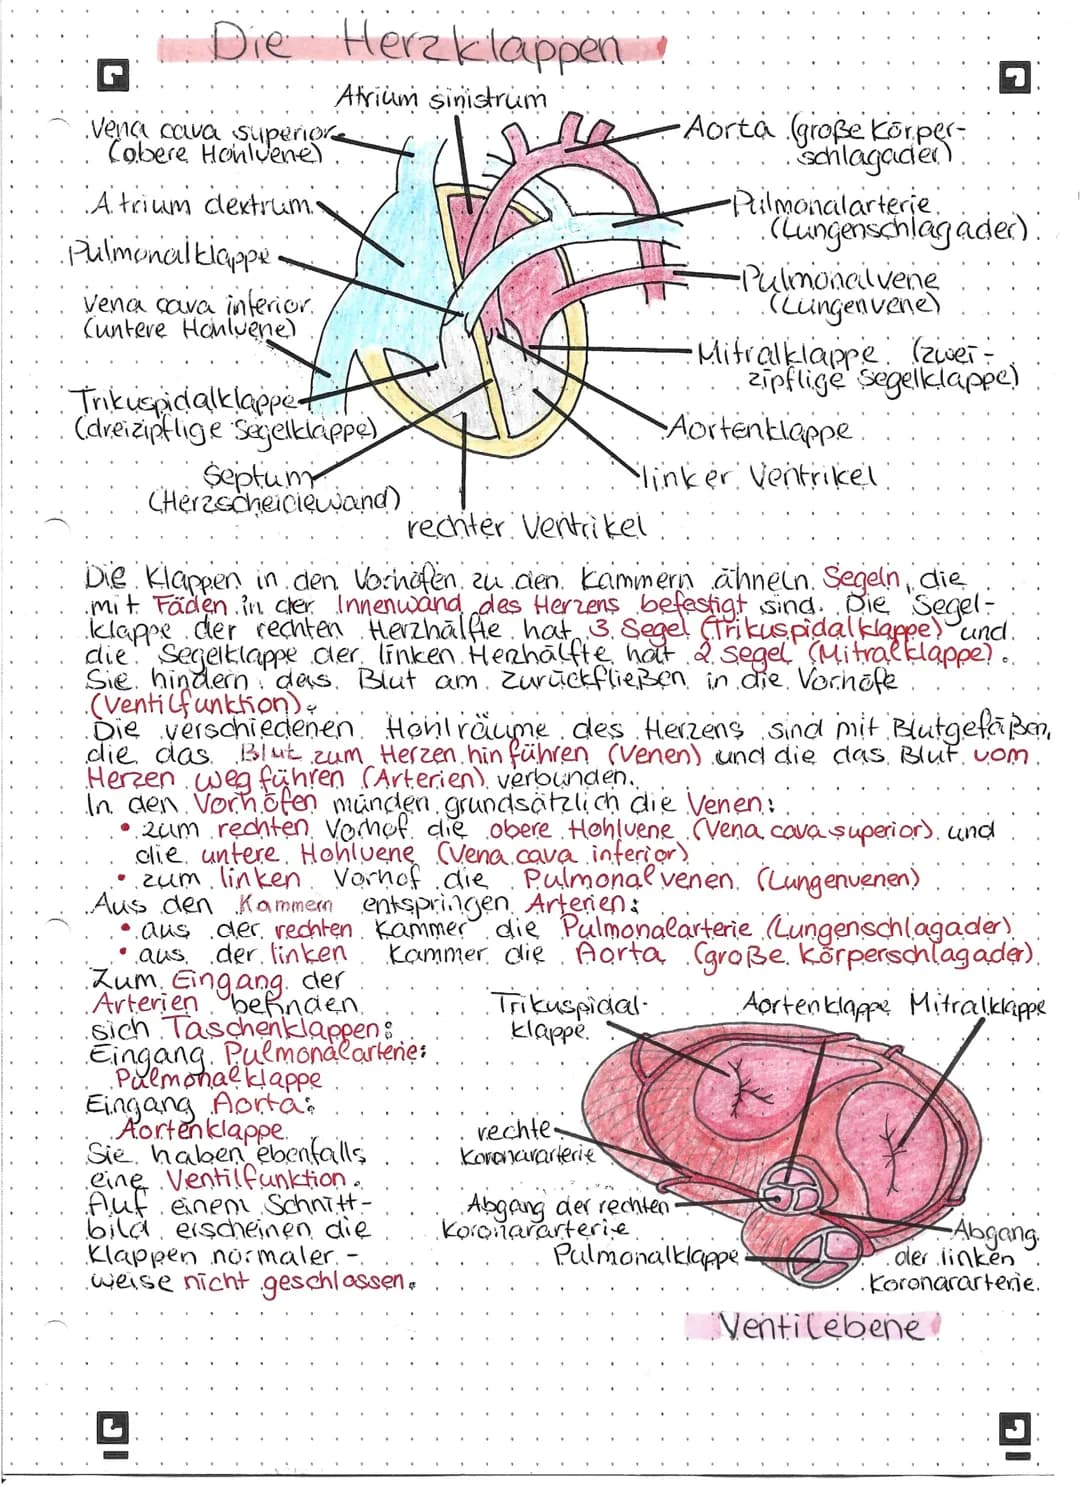 Die Herzklappen
Atrium sinistrum
Vena cava superior
(obere Hohlvene)
Aorta (große Körper-
schlagader)
Atrium dextrum
Pulmonalarterie
(Lungenschlagader)
Pulmonalklappe
Pulmonalvene
(Lungenvene)
Vena cava inferior
(untere Hohlvene)
Mitralklappe (zwei-
zipflige Segelklappe)
Trikuspidalklappe
(dreizipflige Segelklappe)
Aortenklappe
Septum
(Herzscheidewand)
linker Ventrikel
rechter Ventrikel
Die Klappen in den Vorhöfen zu den Kammern ähneln Segeln, die
mit Fäden in der Innenwand des Herzens befestigt sind. Die Segel-
klappe der rechten Herzhälfte hat 3 Segel (Trikuspidalklappe) und
die Segelklappe der linken Herzhälfte hat 2 Segel (Mitralklappe).
Sie hindern das Blut am Zurückfließen in die Vorhöfe
(Ventilfunktion).
Die verschiedenen Hohlräume des Herzens sind mit Blutgefäßen,
die das Blut zum Herzen hin führen (Venen) und die das Blut vom
Herzen weg führen (Arterien) verbunden.
In den Vorhöfen münden grundsätzlich die Venen:
• zum rechten Vorhof die obere Hohlvene (Vena cava superior) und
die untere Hohlvene (Vena cava inferior)
• zum linken Vorhof die Pulmonalvenen (Lungenvenen)
Aus den Kammern entspringen Arterien:
• aus der rechten Kammer die Pulmonalarterie (Lungenschlagader)
• aus der linken Kammer die Aorta (große Körperschlagader).
Zum Eingang der
Arterien befinden
sich Taschenklappen:
Eingang Pulmonalarterie:
Pulmonalklappe
Eingang Aorta:
Aortenklappe
Sie haben ebenfalls
eine Ventilfunktion.
Auf einem Schnitt-
bild erscheinen die
Klappen normaler-
weise nicht geschlossen.
Trikuspidal-
klappe
Aortenklappe Mitralklappe
rechte
Koronararterie
Abgang der rechten
Koronararterie
Pulmonalklappe
Abgang
der linken
Koronararterie
Ventilebene